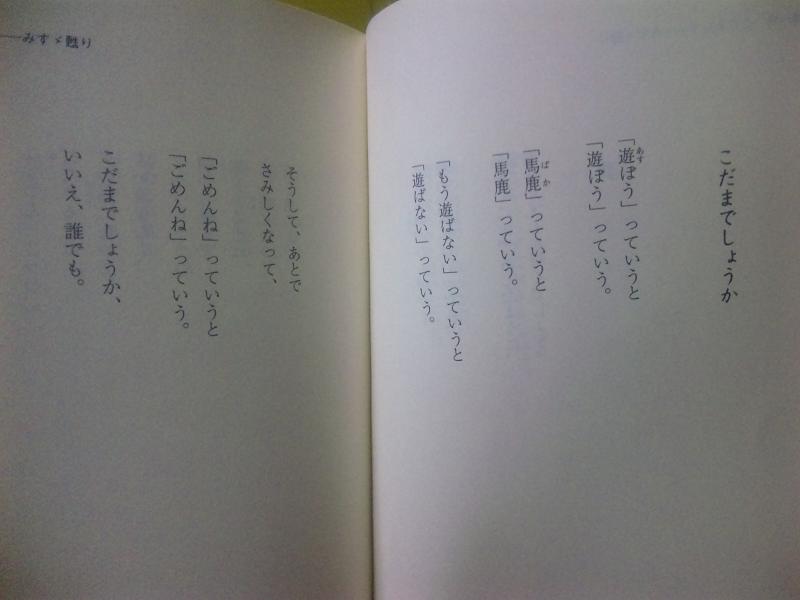 こだまでしょうか
「遊ぼう」っていうと
「遊ぼう」っていう。
「馬鹿」っていうと
「馬鹿」っていう。
「もう遊ばない」っていうと
「遊ばない」っていう。
そうして、あとで
さみしくなって、
「ごめんね」っていうと
「ごめんね」っていう。
こだまでしょうか、
いいえ、誰でも。
──みすゞ甦り